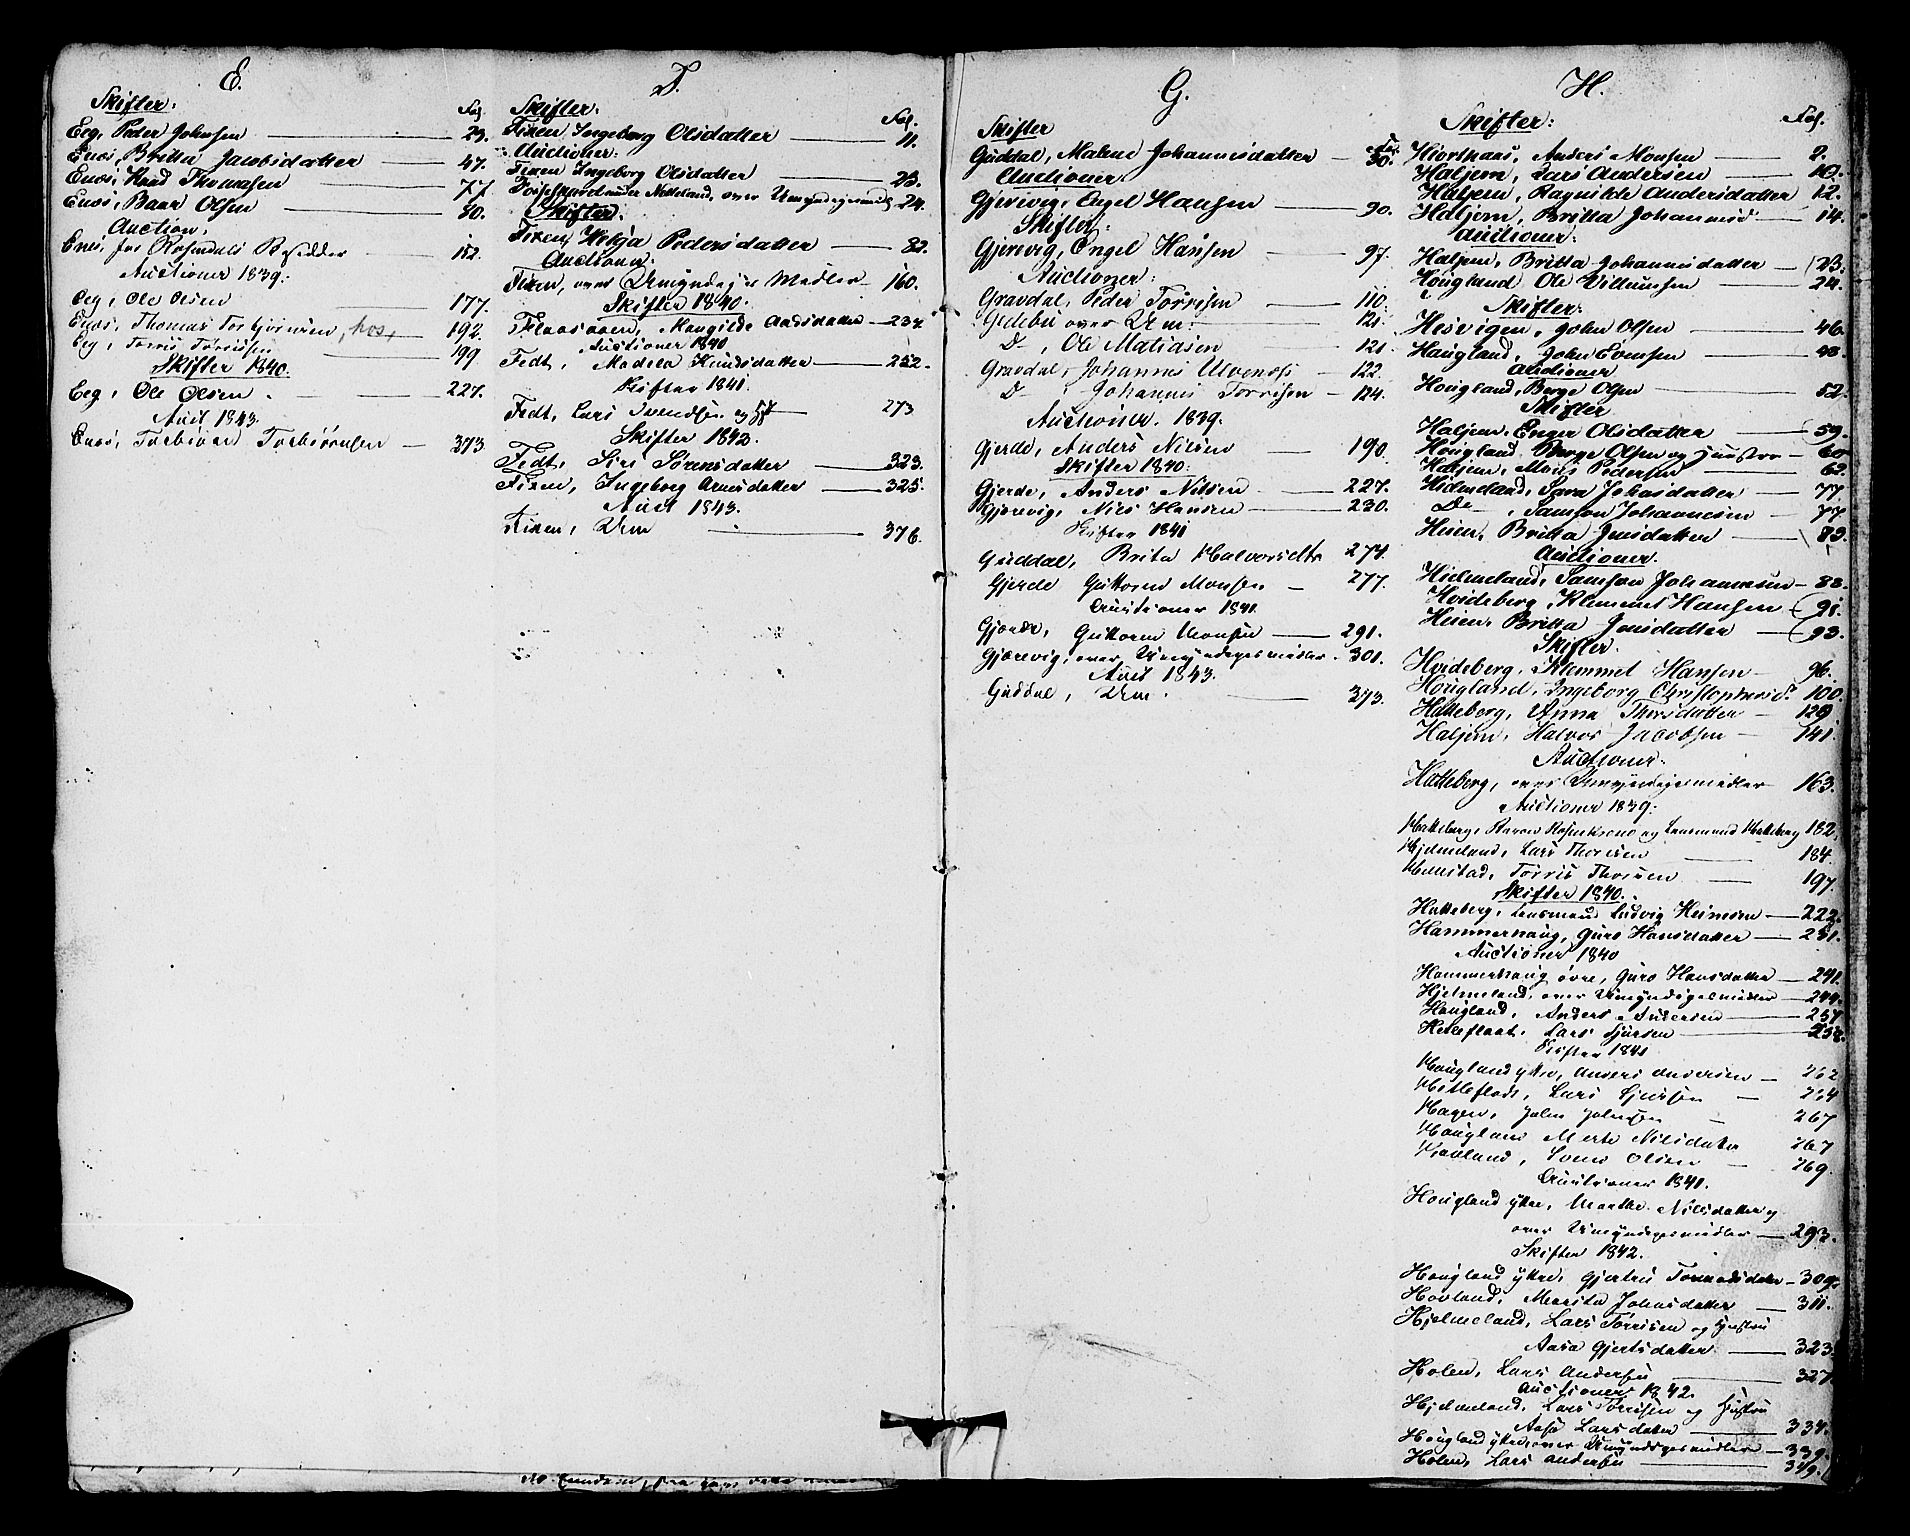 E.
Skifter:
Fol.
Eeg, Peder Johnsen 29.
Enæs, Britta Jacobsdatter 47.
Enæs, Knud Thomasen 77.
Enæs, Baar Olsen 80.
Auction,
Enæs, for Rosendals Besidder 152
Auctioner 1839.
Eeg, Ole Olsen 177.
Enæs, Thomas Torbjørnsen, hos, 192.
Eeg, Torris Torrissen 199.
Skifter 1840.
Eeg, Ole Olsen. 227.
Auct 1843.
Enæs, Torbiørn Torbiørnsen 373
F.
Skifter:
Fol.
Fixen, Ingeborg Olsdatter 11.
Auctioner:
Fixen Ingeborg Olsdatter 23.
under Netteland, over Umyndiges 24.
Skifter.
Fixen, Helga Pedersdatter 82.
Auctioner:
Fixen, over Umyndiges Midler 160.
Skifter 1840.
Flaasaaen, Mangilde Aadsdatter 234.
Auctioner 1840
Fedt, Madela Knudsdatter 252.
Skifter 1841.
Fedt, Lars Svendsen og 273
Skifter 1842.
Fedt, Siri Sørensdatter 323.
Fixen, Ingeborg Arnesdatter 325.
Auct 1843.
Fixen, Um 376.
G.
Skifter
Guddal, Malene Johannesdatter 50.
Auctioner
Gjerevig, Engel Hansen 90.
Skifter:
Gjerevig, Engel Hansen 97.
Auctioner:
Gravdal, Peder Torrisen 110.
Gidebø over Um: 121.
Do, Ole Matiasen 121.
Gravdal, Johannes 122.
Do, Johannis Torrisen 124.
Auctioner. 1839.
Gjerde, Anders Nilsen 190.
Skifter 1840.
Gjerde, Anders Nilsen 227.
Gjærevig, Niels Hansen 230.
Skifter 1841
Guddal, Brita Halvorsdtr 274.
Gjerde Guttorm Monsen 277.
Auctioner 1841.
Gjerde, Guttorm Monsen 291.
Gjærevig, over Umyndigesmidler. 301.
Auct 1843.
Guddal, Um. 373.
H.
Skifter:
Fol.
Hiorthaas, Anders Monsen 2.
Haljem, Lars Andersen 10.
Haljem, Ragnilde Andersdatter 12.
Haljem, Britta Johannesd 14.
Auctioner:
Haljem, Britta Johannisdatter 23.
Hougland Ole Villumsen 24.
Skifter:
Hesvigen, John Olsen 46
Haugland, John Evensen 48.
Auctioner
Hougland, Børge Olsen 52.
Skifter
Haljem, Enger Olsdatter 59.
Hougland Børge Olsen og Hustru 60
Haljem, Mons Pedersen 62.
Hidmeland, Sara Johansdatter 77.
Do, Samson Johannesen 77.
Heien, Britta Jensdatter 83.
Auctioner.
Hidmeland, Samson Johannesen 88.
Hvideberg, Klemmet Hansen 91.
Heien, Britta Jensdatter 93.
Skifter.
Hvideberg, Klemmet Hansen 96.
Hougland, Ingeborg Christophersd. 100.
Hatteberg, Anna Thorsdatter 129.
Haljem, Halvor Jacobsen 141.
Auctioner.
Hatteberg, over Umyndigesmidler 163.
Auctioner 1839.
Hatteberg, Baron Rosenkrone og Lensmand Hatteberg 182.
Hjelmeland, Lars Thorisen 184.
Hellestad, Torris Thorsen 197.
Skifter 1840.
Hatteberg, Lensmand Ludvig Heimsen 222.
Hammerhaug, Guro Hansdatter 231.
Auctioner 1840
Hammerhaug øvre, Guro Hansdatter 241.
Hjelmeland, over Umyndigesmidler 244.
Haugland, Anders Andersen 257
Hetleflaat, Lars Sjursen 258.
Skifter 1841
Haugland ytre, Anders Andersen 262
Hetleflaat, Lars Sjursen 264
Hagen, John Johnsen 267
Hougland Merte Nilsdatter 267
Hovland, Svend Olsen 269.
Auctioner 1841.
Hougland ytre, Marthe Nilsdatter og
over Umyndigesmidler 293.
Skifter 1842.
Hougland ytre, Gjertru Tormodsdatter 309.
Hovland, Marita Johasdatter 311.
Hjelmeland, Lars Torrisen og Hustru
Aasa Gjertsdatter 323.
Holen, Lars Andersen 327.
Auctioner 1842.
Hjelmeland, Lars Torrisen og Hustru
Aasa Larsdatter 334.
Hougland ytre over Umyndigesmidler 339.
Holen, Lars Andersen 349.